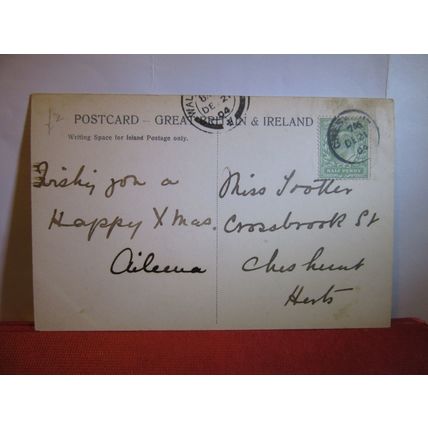 £2
POSTCARD – GREAT BRITAIN & IRELAND
Writing Space for Inland Postage only.
HALF PENNY
Wishing you a
Happy Xmas.
Aileena
Miss Trotter
Crossbrook St
Cheshunt
Herts